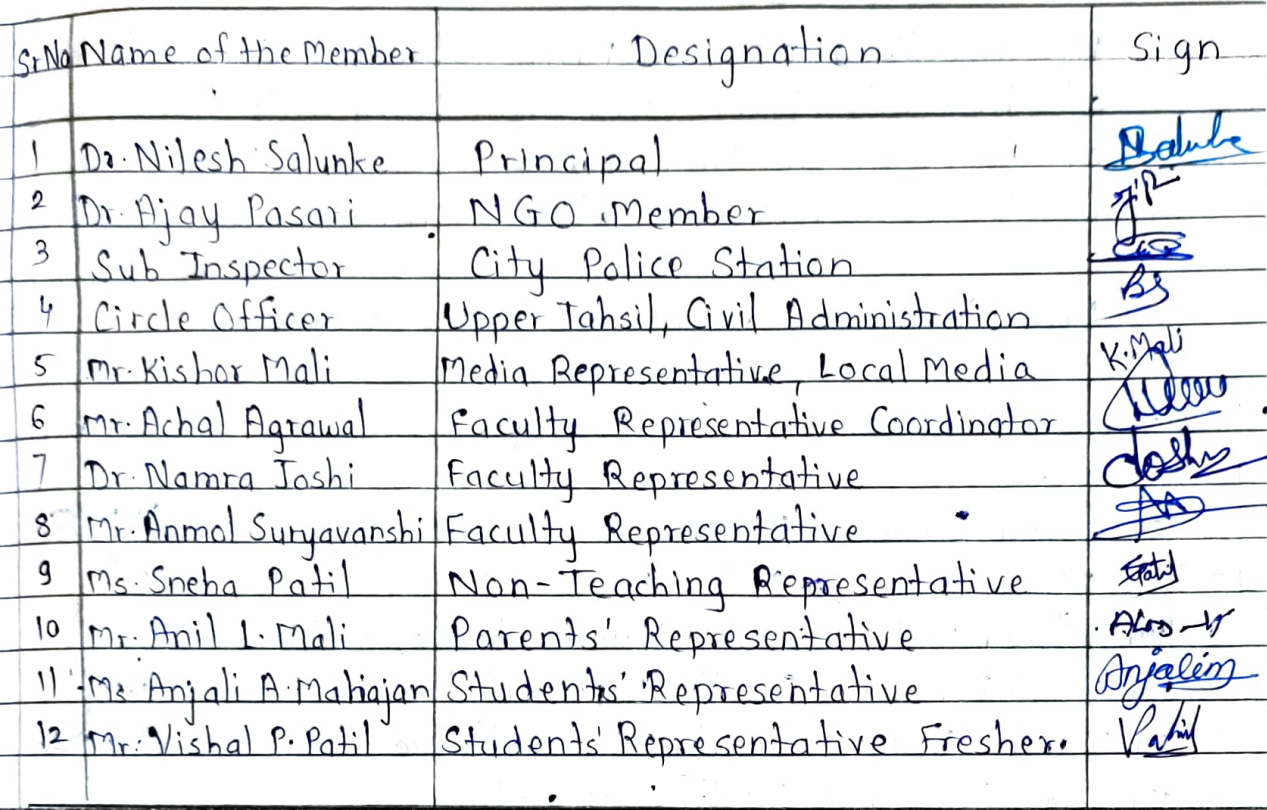 Sr.No Name of the Member Designation Sign
1 Dr. Nilesh Salunke Principal
2 Dr. Ajay Pasari NGO Member
3 Sub Inspector City Police Station
4 Circle Officer Upper Tahsil, Civil Administration BS
5 Mr. Kishor Mali Media Representative, Local Media K.Mali
6 Mr. Achal Agrawal Faculty Representative Coordinator
7 Dr. Namra Joshi Faculty Representative Joshi
8 Mr. Anmol Suryavanshi Faculty Representative
9 Ms. Sneha Patil Non-Teaching Representative
10 Mr. Anil L. Mali Parents' Representative
11 Ms. Anjali A. Mahajan Students' Representative Anjalim
12 Mr. Vishal P. Patil Students' Representative Fresher.